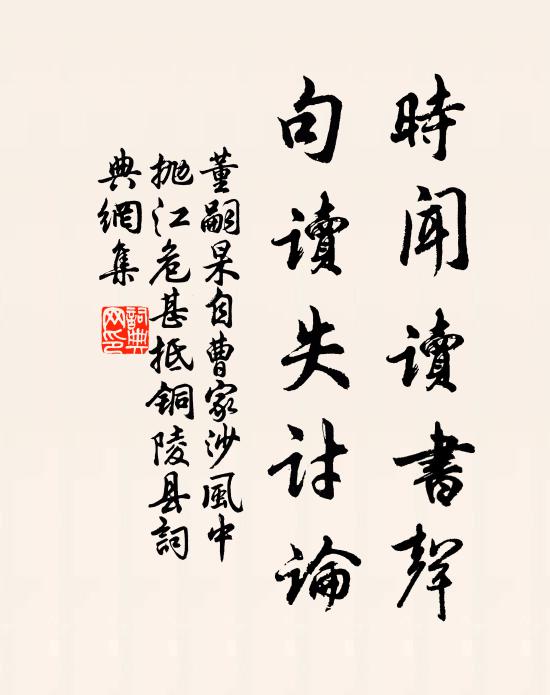 時聞讀書聲
句讀失討論
董嗣杲自曹家沙風中
抛江危甚抵銅陵县詞
典網集
詞典
网印